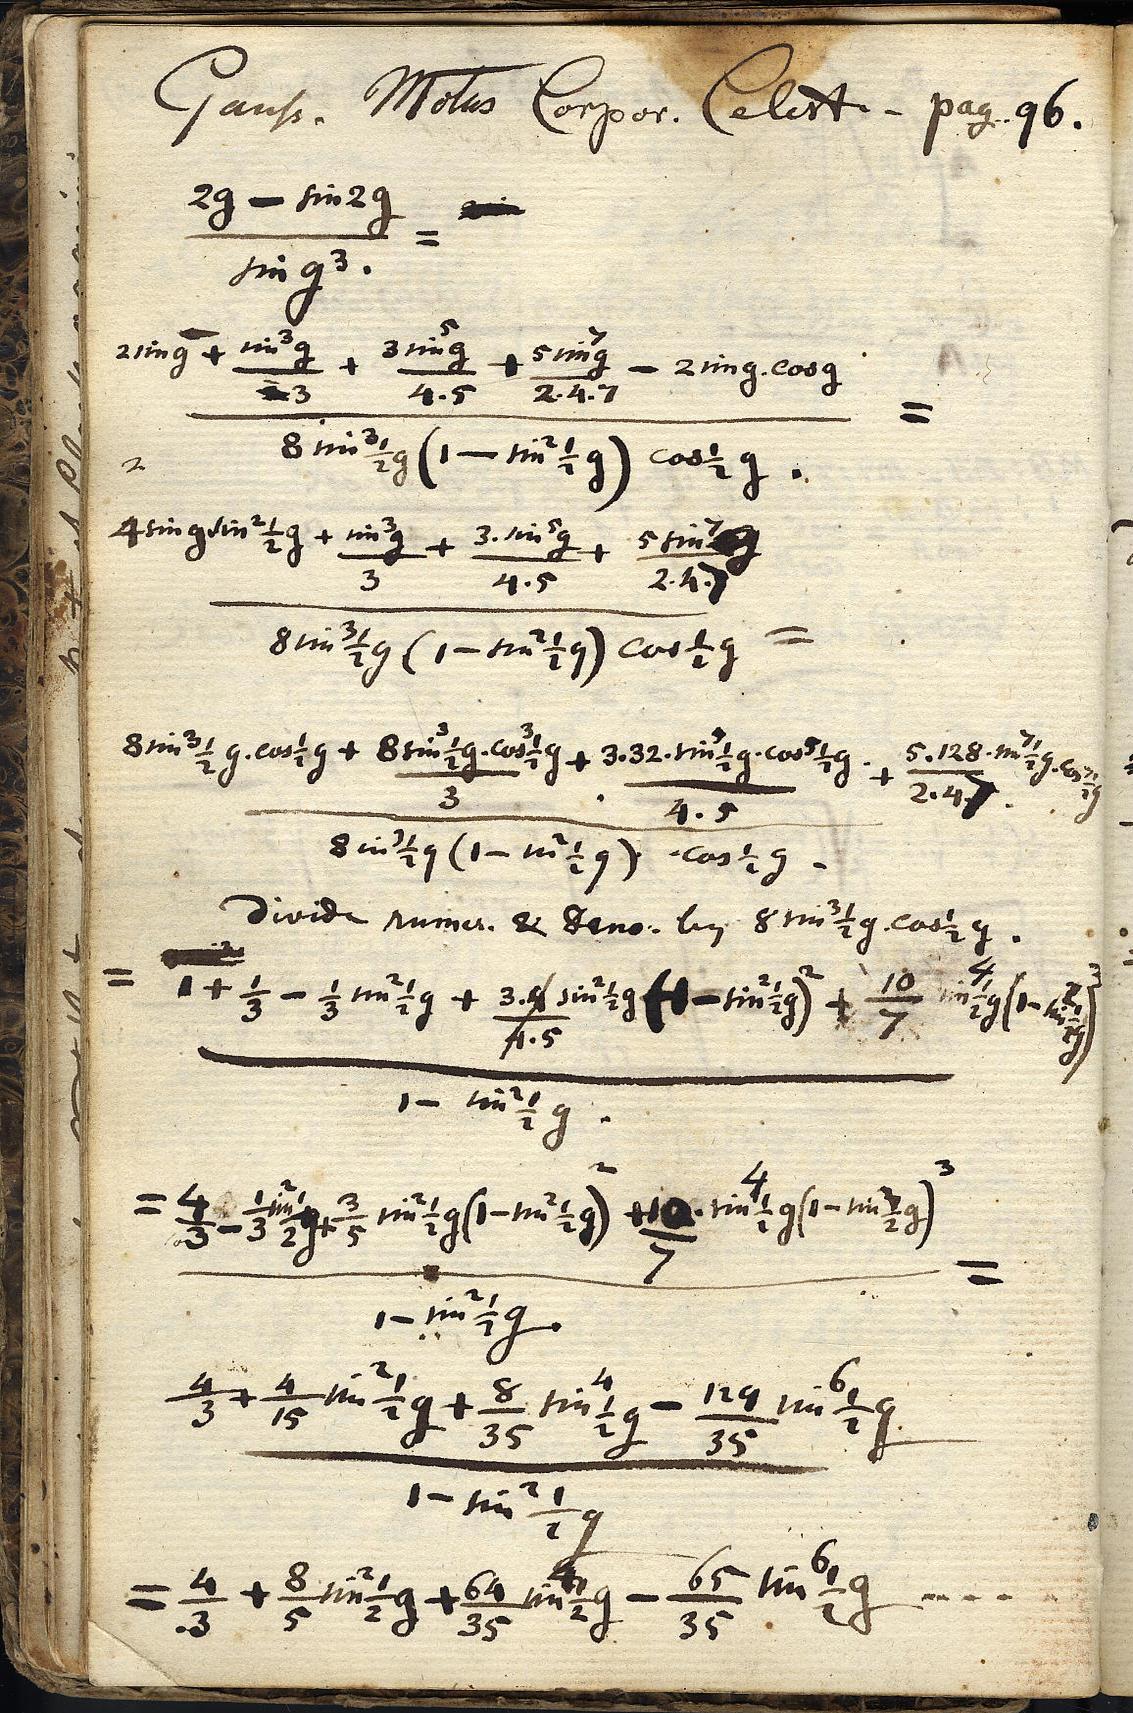 Gauss. Motus Corpor. Celest. - pag. 96.
2g — sin 2g
=
sin g³.
2sin g + sin³g + 3sin⁵g + 5sin⁷g — 2sin g.cos g
3 4.5 2.4.7
=
8 sin³½g (1 — sin²½g) cos½g.
2
4sin g sin²½g + sin³g + 3.sin⁵g + 5sin⁷g
3 4.5 2.4.7
8sin³½g (1 — sin²½g) cos½g =
8sin³½g.cos½g + 8sin³½g.cos³½g + 3.32.sin⁵½g.cos⁵½g + 5.128.sin⁷½g.cos⁷½g
3 4.5 2.4.7.
8sin³½g (1 — sin²½g) .cos½g -
Divide numer. & Deno. by 8sin³½g.cos½g.
= 1 + 1/3 — 1/3 sin²½g + 3.4 sin²½g (1 — sin²½g)² + 10/7 sin⁴½g (1 — sin²½g)³
4.5
1 — sin²½g.
= 4/3 — 1/3 sin²½g + 3/5 sin²½g (1 — sin²½g)² + 10/7 . sin⁴½g (1 — sin²½g)³
=
1 — sin²½g.
4/3 + 4/15 sin²½g + 8/35 sin⁴½g — 129/35 sin⁶½g
1 — sin²½g
= 4/3 + 8/5 sin²½g + 64/35 sin⁴½g — 65/35 sin⁶½g - - - -